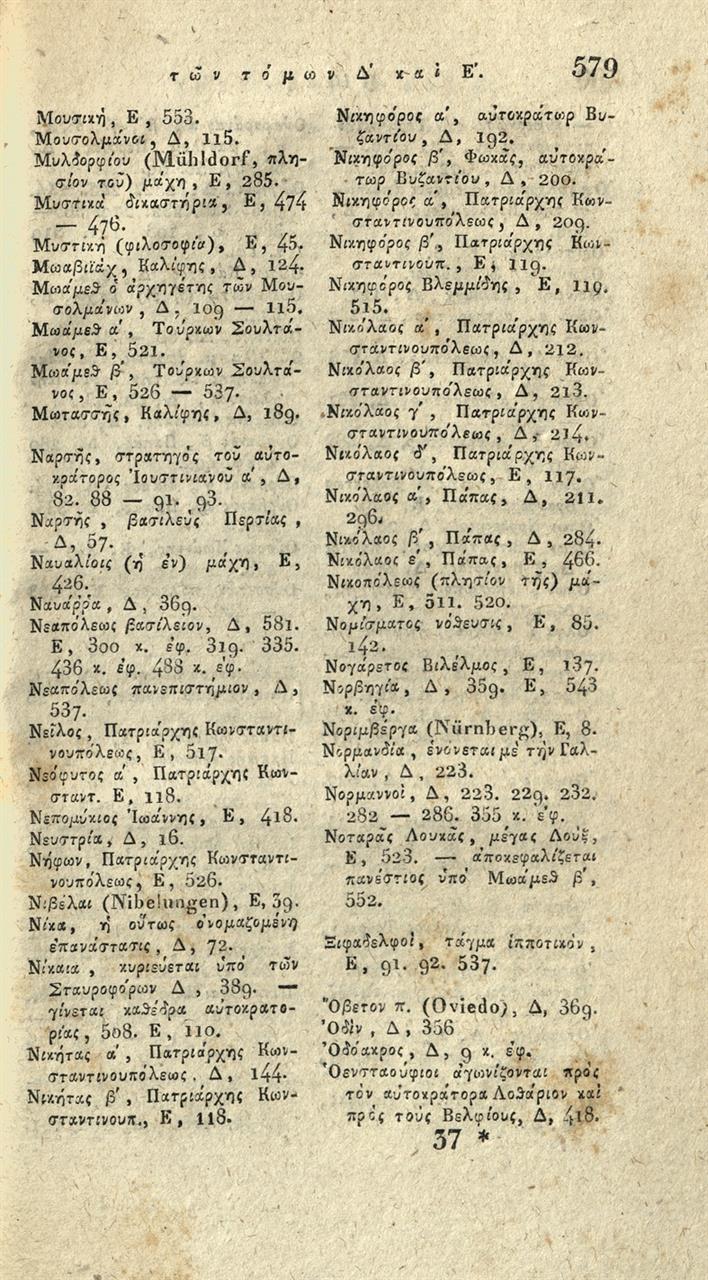 τῶν τόμων Δ' καὶ Ε'. 579
Μουσικὴ, Ε, 553.
Μουσολμάνοι, Δ, 115.
Μυλδορφίου (Mühldorf, πλη-
σίον τοῦ) μάχη, Ε, 285.
Μυστικὰ δικαστήρια, Ε, 474
— 476.
Μυστικὴ (φιλοσοφία), Ε, 45.
Μωαβιϊάχ, Καλίφης, Δ, 124.
Μωάμεθ ὁ ἀρχηγέτης τῶν Μου-
σολμάνων, Δ, 109 — 115.
Μωάμεθ α', Τούρκων Σουλτά-
νος, Ε, 521.
Μωάμεθ β', Τούρκων Σουλτά-
νος, Ε, 526 — 537.
Μωτασσῆς, Καλίφης, Δ, 189.
Ναρσῆς, στρατηγὸς τοῦ αὐτο-
κράτορος Ἰουστινιανοῦ α', Δ,
82. 88 — 91. 93.
Ναρσῆς, βασιλεὺς Περσίας,
Δ, 57.
Ναυαλίοις (ἡ ἐν) μάχη, Ε,
426.
Ναυάῤῥα, Δ, 369.
Νεαπόλεως βασίλειον, Δ, 581.
Ε, 300 κ. ἑφ. 319. 335.
436 κ. ἑφ. 488 κ. ἑφ.
Νεαπόλεως πανεπιστήμιον, Δ,
537.
Νεῖλος, Πατριάρχης Κωνσταντι-
νουπόλεως, Ε, 517.
Νεόφυτος α', Πατριάρχης Κων-
σταντ. Ε, 118.
Νεπομύκιος Ἰωάννης, Ε, 418.
Νευστρία, Δ, 16.
Νήφων, Πατριάρχης Κωνσταντι-
νουπόλεως, Ε, 526.
Νιβέλαι (Nibelungen), Ε, 39.
Νίκα, ἡ οὕτως ὀνομαζομένη
ἐπανάστασις, Δ, 72.
Νίκαια, κυριεύεται ὑπὸ τῶν
Σταυροφόρων Δ, 389. —
γίνεται καθέδρα αὐτοκρατο-
ρίας, 508. Ε, 110.
Νικήτας α', Πατριάρχης Κων-
σταντινουπόλεως. Δ, 144.
Νικήτας β', Πατριάρχης Κων-
σταντινουπ., Ε, 118.
Νικηφόρος α', αὐτοκράτωρ Βυ-
ζαντίου, Δ, 192.
Νικηφόρος β', Φωκᾶς, αὐτοκρά-
τωρ Βυζαντίου, Δ, 200.
Νικηφόρος α', Πατριάρχης Κων-
σταντινουπόλεως, Δ, 209.
Νικηφόρος β', Πατριάρχης Κων-
σταντινουπ., Ε, 119.
Νικηφόρος Βλεμμίδης, Ε, 119.
515.
Νικόλαος α', Πατριάρχης Κων-
σταντινουπόλεως, Δ, 212.
Νικόλαος β', Πατριάρχης Κων-
σταντινουπόλεως, Δ, 213.
Νικόλαος γ', Πατριάρχης Κων-
σταντινουπόλεως, Δ, 214.
Νικόλαος δ', Πατριάρχης Κων-
σταντινουπόλεως, Ε, 117.
Νικόλαος α', Πάπας, Δ, 211.
296.
Νικόλαος β', Πάπας, Δ, 284.
Νικόλαος ε', Πάπας, Ε, 466.
Νικοπόλεως (πλησίον τῆς) μά-
χη, Ε, 511. 520.
Νομίσματος νόθευσις, Ε, 85.
142.
Νογάρετος Βιλέλμος, Ε, 137.
Νορβηγία, Δ, 359. Ε, 543
κ. ἑφ.
Νοριμβέργα (Nürnberg), Ε, 8.
Νορμανδία, ἑνόνεται μὲ τὴν Γαλ-
λίαν, Δ, 223.
Νορμαννοὶ, Δ, 223. 229. 232.
282 — 286. 355 κ. ἑφ.
Νοταρᾶς Λουκᾶς, μέγας Δοὺξ,
Ε, 523. — ἀποκεφαλίζεται
πανέστιος ὑπὸ Μωάμεθ β',
552.
Ξιφαδελφοὶ, τάγμα ἱπποτικὸν,
Ε, 91. 92. 537.
Ὄβετον π. (Oviedo), Δ, 369.
Ὀδὶν, Δ, 356
Ὀδόακρος, Δ, 9 κ. ἑφ.
Ὀενσταούφιοι ἀγωνίζονται πρὸς
τὸν αὐτοκράτορα Λοθάριον καὶ
πρὸς τοὺς Βελφίους, Δ, 418.
37 *